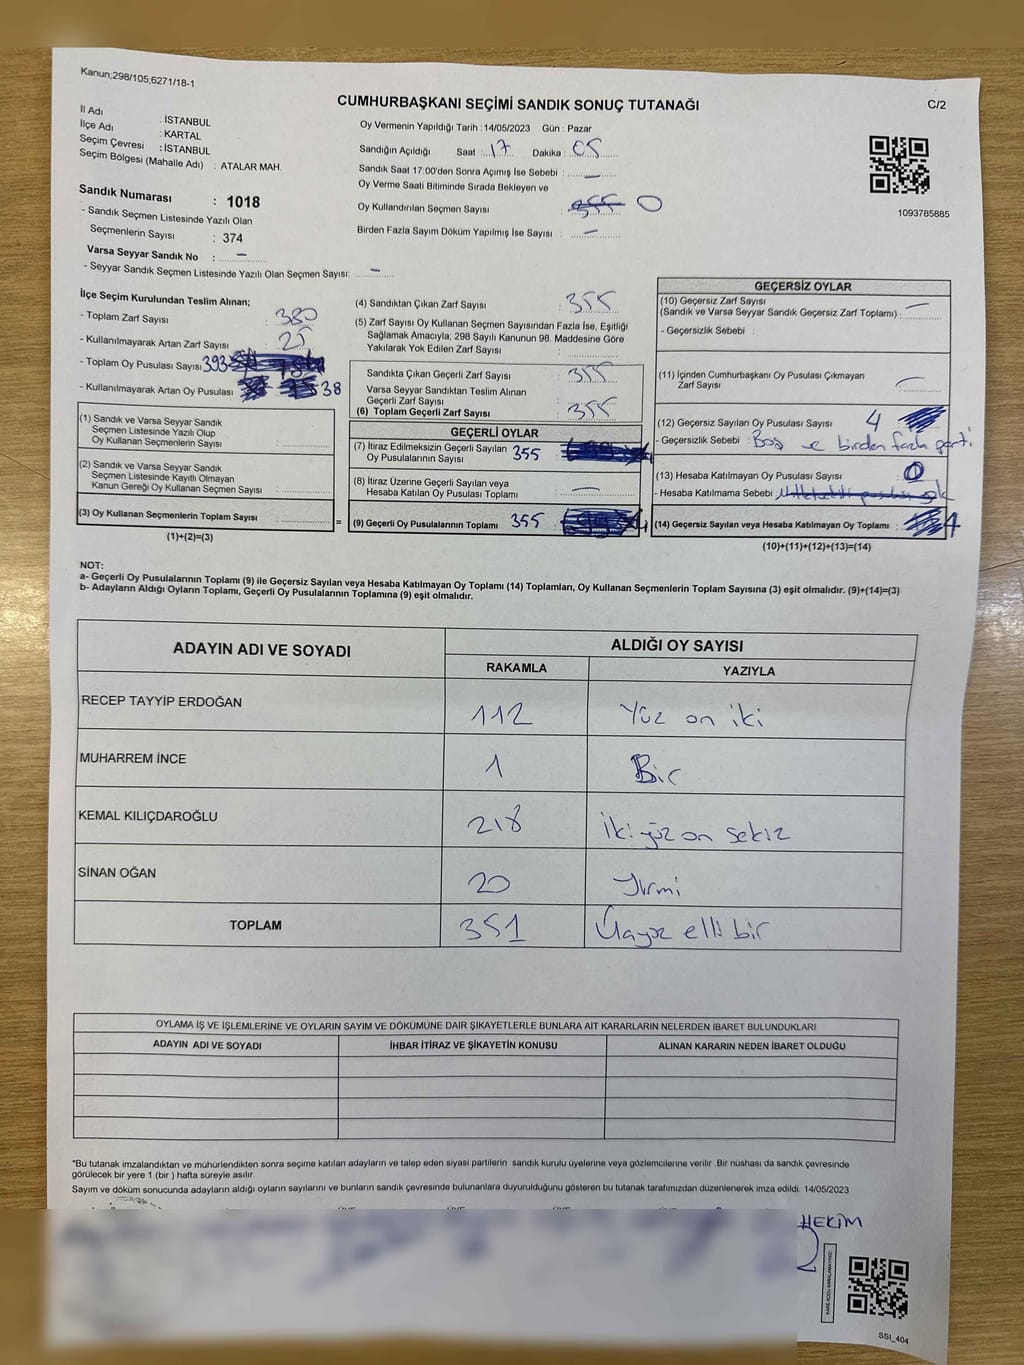 Kanun;298/105,6271/18-1
CUMHURBAŞKANI SEÇİMİ SANDIK SONUÇ TUTANAĞI
C/2
İl Adı : İSTANBUL
İlçe Adı : KARTAL
Seçim Çevresi : İSTANBUL
Seçim Bölgesi (Mahalle Adı) : ATALAR MAH.
Oy Vermenin Yapıldığı Tarih : 14/05/2023 Gün : Pazar
Sandığın Açıldığı Saat : 17 Dakika : 05
Sandık Saat 17:00'den Sonra Açımış İse Sebebi : —
Oy Verme Saati Bitiminde Sırada Bekleyen ve
Oy Kullandırılan Seçmen Sayısı : 355 0
Birden Fazla Sayım Döküm Yapılmış İse Sayısı : —
1093785885
Sandık Numarası : 1018
- Sandık Seçmen Listesinde Yazılı Olan
Seçmenlerin Sayısı : 374
Varsa Seyyar Sandık No : —
- Seyyar Sandık Seçmen Listesinde Yazılı Olan Seçmen Sayısı: —
İlçe Seçim Kurulundan Teslim Alınan;
- Toplam Zarf Sayısı : 380
- Kullanılmayarak Artan Zarf Sayısı : 25
- Toplam Oy Pusulası Sayısı 393
- Kullanılmayarak Artan Oy Pusulası 38
(1) Sandık ve Varsa Seyyar Sandık
Seçmen Listesinde Yazılı Olup
Oy Kullanan Seçmenlerin Sayısı :
(2) Sandık ve Varsa Seyyar Sandık
Seçmen Listesinde Kayıtlı Olmayan
Kanun Gereği Oy Kullanan Seçmen Sayısı :
(3) Oy Kullanan Seçmenlerin Toplam Sayısı : =
(1)+(2)=(3)
(4) Sandıktan Çıkan Zarf Sayısı : 355
(5) Zarf Sayısı Oy Kullanan Seçmen Sayısından Fazla İse, Eşitliği
Sağlamak Amacıyla; 298 Sayılı Kanunun 98. Maddesine Göre
Yakılarak Yok Edilen Zarf Sayısı :
Sandıkta Çıkan Geçerli Zarf Sayısı : 355
Varsa Seyyar Sandıktan Teslim Alınan
Geçerli Zarf Sayısı :
(6) Toplam Geçerli Zarf Sayısı : 355
GEÇERLİ OYLAR
(7) İtiraz Edilmeksizin Geçerli Sayılan
Oy Pusulalarının Sayısı 355
(8) İtiraz Üzerine Geçerli Sayılan veya
Hesaba Katılan Oy Pusulası Toplamı : —
(9) Geçerli Oy Pusulalarının Toplamı 355
GEÇERSİZ OYLAR
(10) Geçersiz Zarf Sayısı
(Sandık ve Varsa Seyyar Sandık Geçersiz Zarf Toplamı) : —
- Geçersizlik Sebebi :
(11) İçinden Cumhurbaşkanı Oy Pusulası Çıkmayan
Zarf Sayısı : —
(12) Geçersiz Sayılan Oy Pusulası Sayısı : 4
- Geçersizlik Sebebi : Boş ve birden fazla parti
(13) Hesaba Katılmayan Oy Pusulası Sayısı : 0
- Hesaba Katılmama Sebebi :
(14) Geçersiz Sayılan veya Hesaba Katılmayan Oy Toplamı : 4
(10)+(11)+(12)+(13)=(14)
NOT:
a- Geçerli Oy Pusulalarının Toplamı (9) ile Geçersiz Sayılan veya Hesaba Katılmayan Oy Toplamı (14) Toplamları, Oy Kullanan Seçmenlerin Toplam Sayısına (3) eşit olmalıdır. (9)+(14)=(3)
b- Adayların Aldığı Oyların Toplamı, Geçerli Oy Pusulalarının Toplamına (9) eşit olmalıdır.
ADAYIN ADI VE SOYADI ALDIĞI OY SAYISI
RAKAMLA YAZIYLA
RECEP TAYYİP ERDOĞAN 112 Yüz on iki
MUHARREM İNCE 1 Bir
KEMAL KILIÇDAROĞLU 218 iki yüz on sekiz
SİNAN OĞAN 20 Yirmi
TOPLAM 351 Üçyüz elli bir
OYLAMA İŞ VE İŞLEMLERİNE VE OYLARIN SAYIM VE DÖKÜMÜNE DAİR ŞİKAYETLERLE BUNLARA AİT KARARLARIN NELERDEN İBARET BULUNDUKLARI
ADAYIN ADI VE SOYADI İHBAR İTİRAZ VE ŞİKAYETİN KONUSU ALINAN KARARIN NEDEN İBARET OLDUĞU
*Bu tutanak imzalandıktan ve mühürlendikten sonra seçime katılan adayların ve talep eden siyasi partilerin sandık kurulu üyelerine veya gözlemcilerine verilir. Bir nüshası da sandık çevresinde
görülecek bir yere 1 (bir ) hafta süreyle asılır.
Sayım ve döküm sonucunda adayların aldığı oyların sayılarını ve bunların sandık çevresinde bulunanlara duyurulduğunu gösteren bu tutanak tarafımızdan düzenlenerek imza edildi. 14/05/2023
HEKİM
SSI_404